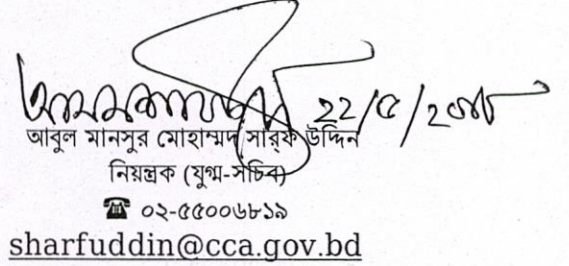 আবুল মানসুর মোহাম্মদ সার্‌ফ উদ্দিন
নিয়ন্ত্রক (যুগ্ম-সচিব)
☎ ০২-৫৫০০৬৮১৯
sharfuddin@cca.gov.bd